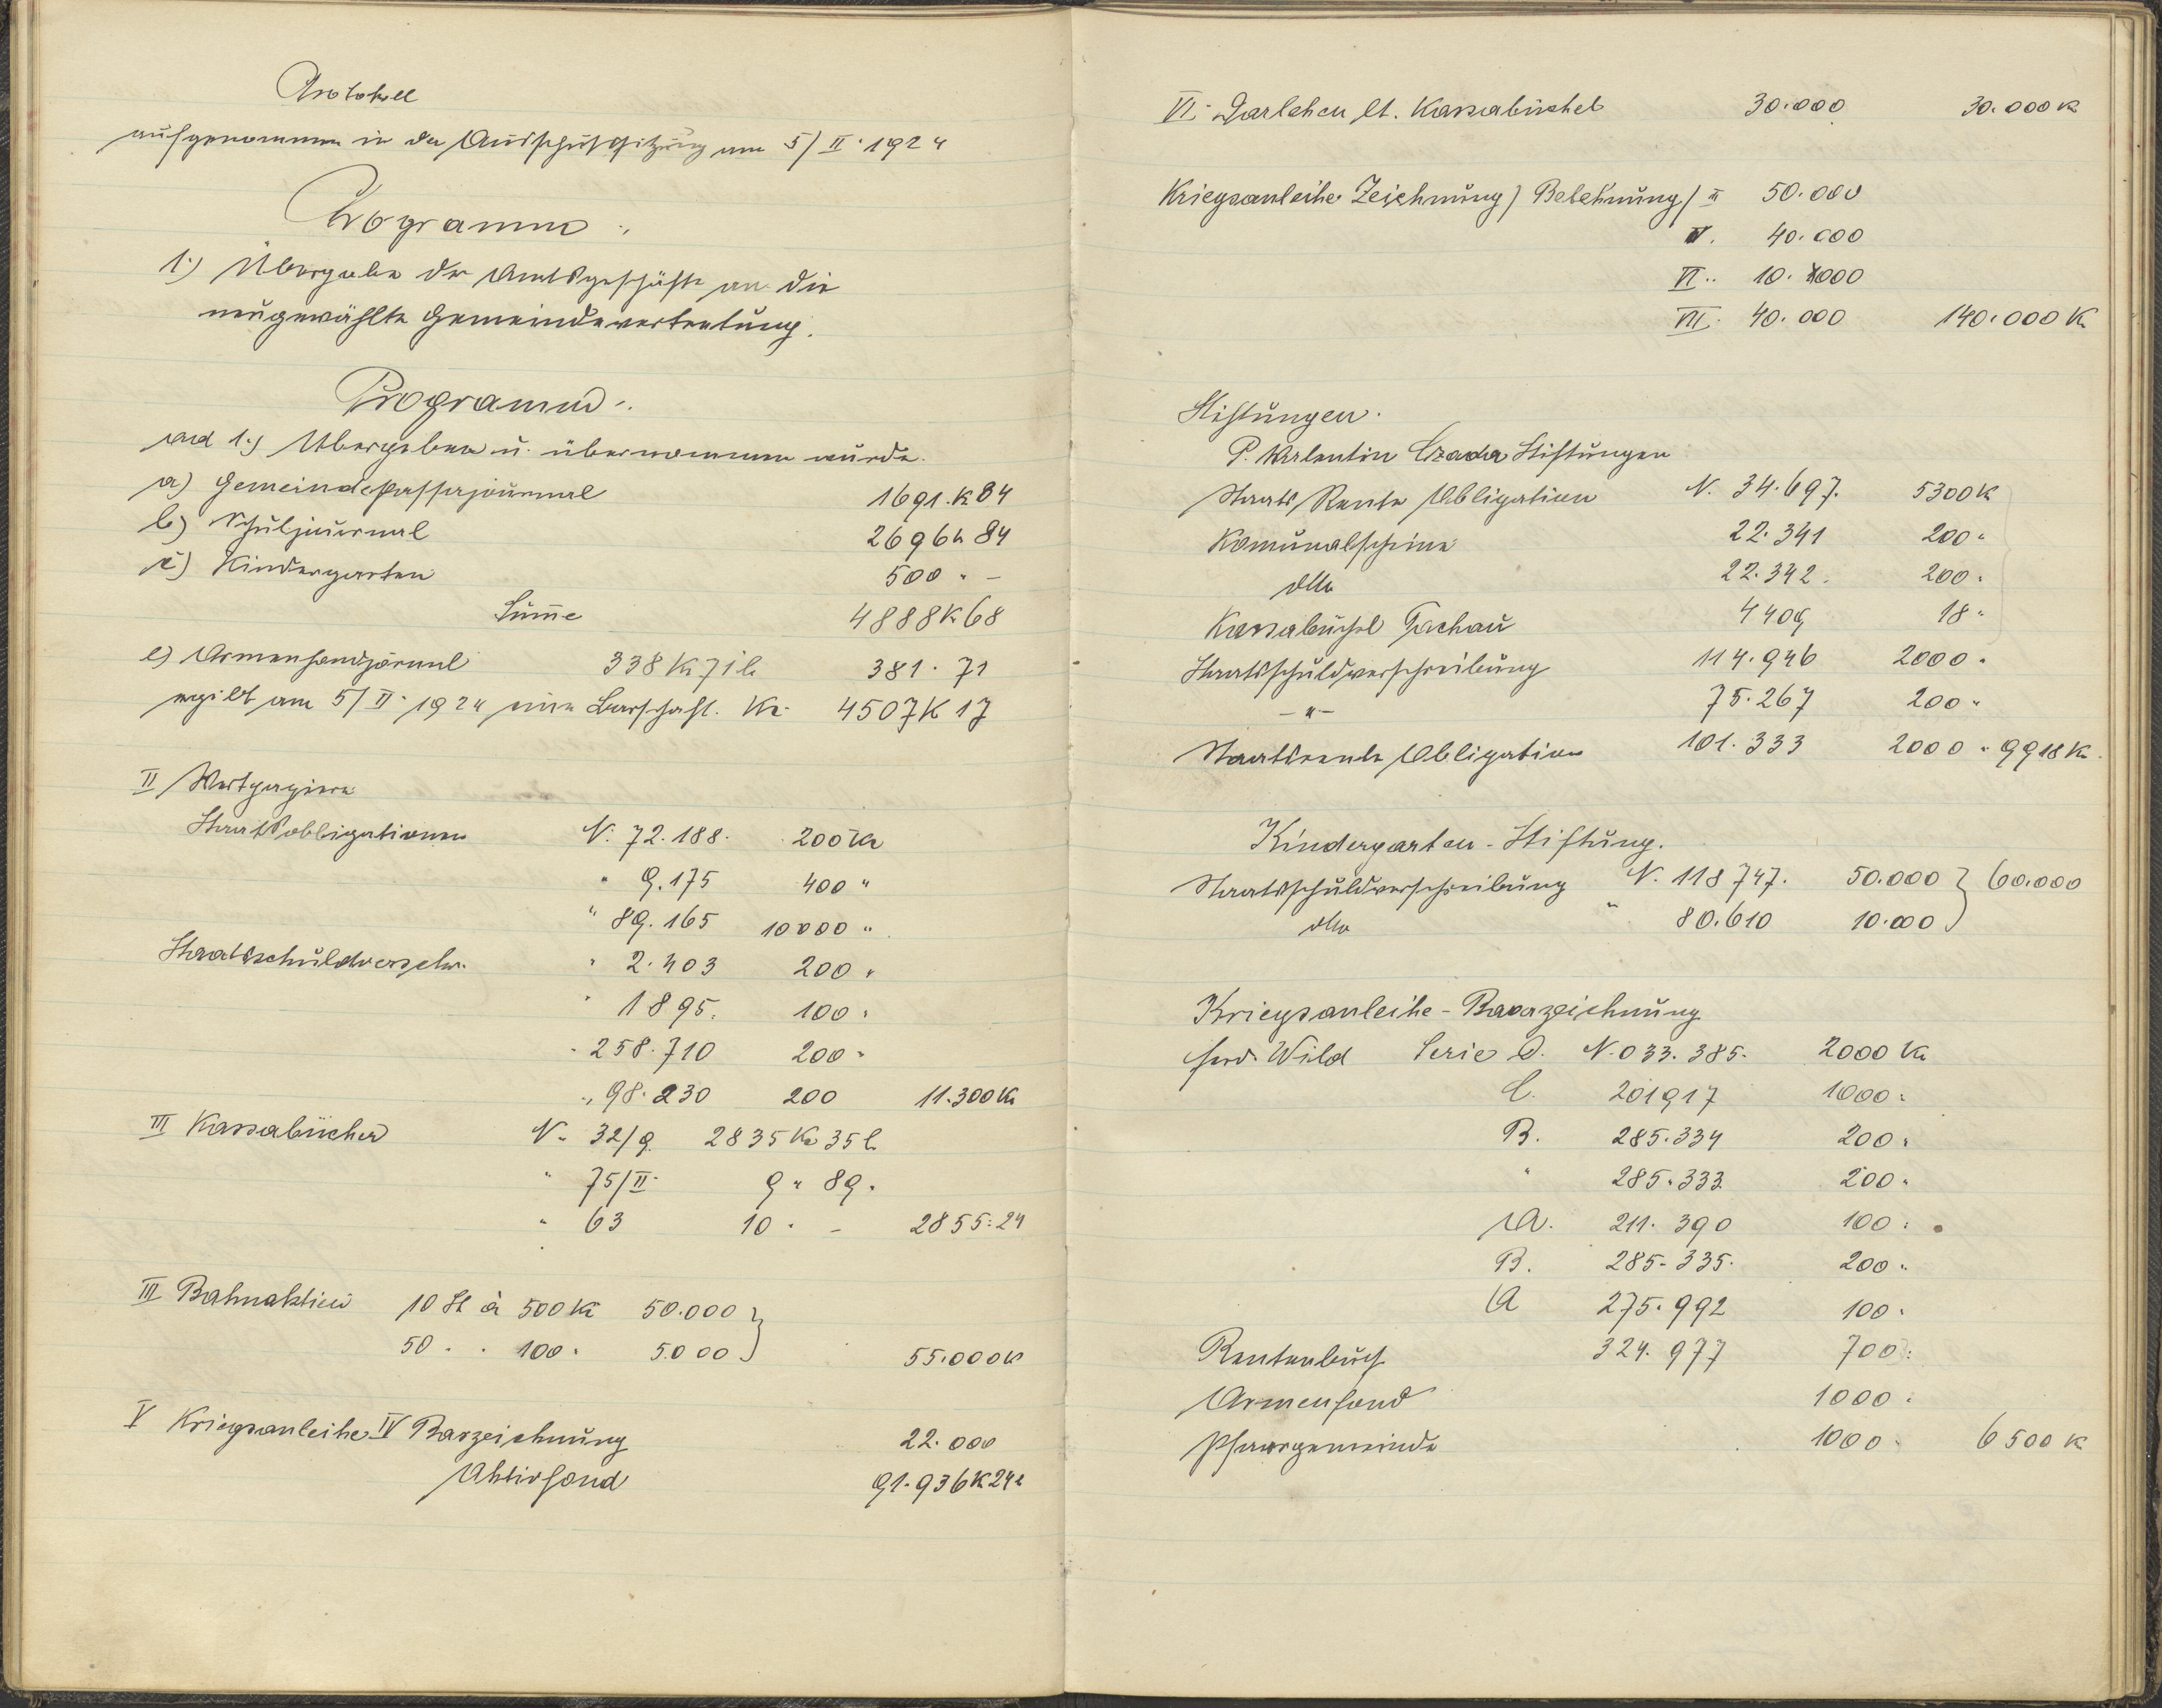 Protokoll
aufgenommen in der Ausschußsitzung am 5/II. 1924
Programm:
1.) Übergabe der Amtsgeschäfte an die
neugewählte Gemeindevertretung.
Programm.
ad 1.) Übergeben u. übernommen wurde.
a) Gemeindekassajournal 1691.K 84
b) Schuljournal 2696 h 84
c) Kindergarten 500 " –
Sum̄e 4888 K 68
e) Armenfondjornal 338 K 71 h 381. 71
ergibt am 5/II. 1924 eine Barschaft. Kč 4507 K 17
II Wertpapiere
Staatsobligationen N. 72.188. 200 Kč
" 9.175 400 "
" 89.165 10000 "
Staatsschuldverschr. " 2.403 200 "
" 1895. 100 "
" 258.710 200 "
" 98.230 200 11.300 Kč
III Kassabücher N. 32/9. 2835 Kč 35 h
" 75/II. 9 " 89.
" 63 10 " – 2855.24
III Bahnaktien 10 St à 500 Kč 50.000
50 " " 100 " 5000 55.000 K
V Kriegsanleihe IV Barzeichnung 22.000
Aktivfond 91.936 K 24 h
VI. Darlehen lt. Kassabüchel 30.000 30.000 K
Kriegsanleihe Zeichnung / Belehnung / III 50.000
IV. 40.000
VI. 10.000
VII. 40.000 140.000 K
Stiftungen.
P. Valentin Czada Stiftungen
Staats Rente Obligation N. 34.697. 5300 K
Komunalscheine 22.341 200 "
dtto 22.342. 200 "
Kassabüchel Tachau 4409 18 "
Staatsschuldverschreibung 114.946 2000 "
– " – 75.267 200 "
Staatsrente Obligation 101.333 2000 " 9918 K.
Kindergarten - Stiftung.
Staatsschuldverschreibung N. 118747. 50.000 60.000
dtto " 80.610 10.000
Kriegsanleihe - Barzeichnung
Ferd. Wild Serie D. N. 033.385. 2000 K
C. 201917 1000 "
B. 285.334 200 "
" 285.333 200 "
A. 211.390 100 "
B. 285.335. 200 "
A 275.992 100 "
Rentenbuch 324.977 700 "
Armenfond 1000 "
Pfarrgemeinde 1000 " 6500 K